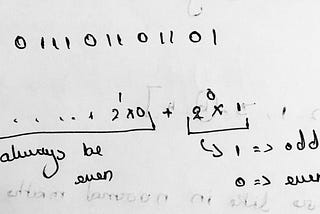 0 1 1 1 0 1 1 0 1 1 0 1
. . . . . + 2¹×0 + 2⁰× 1
always be ↳ 1 => odd
even 0 => even